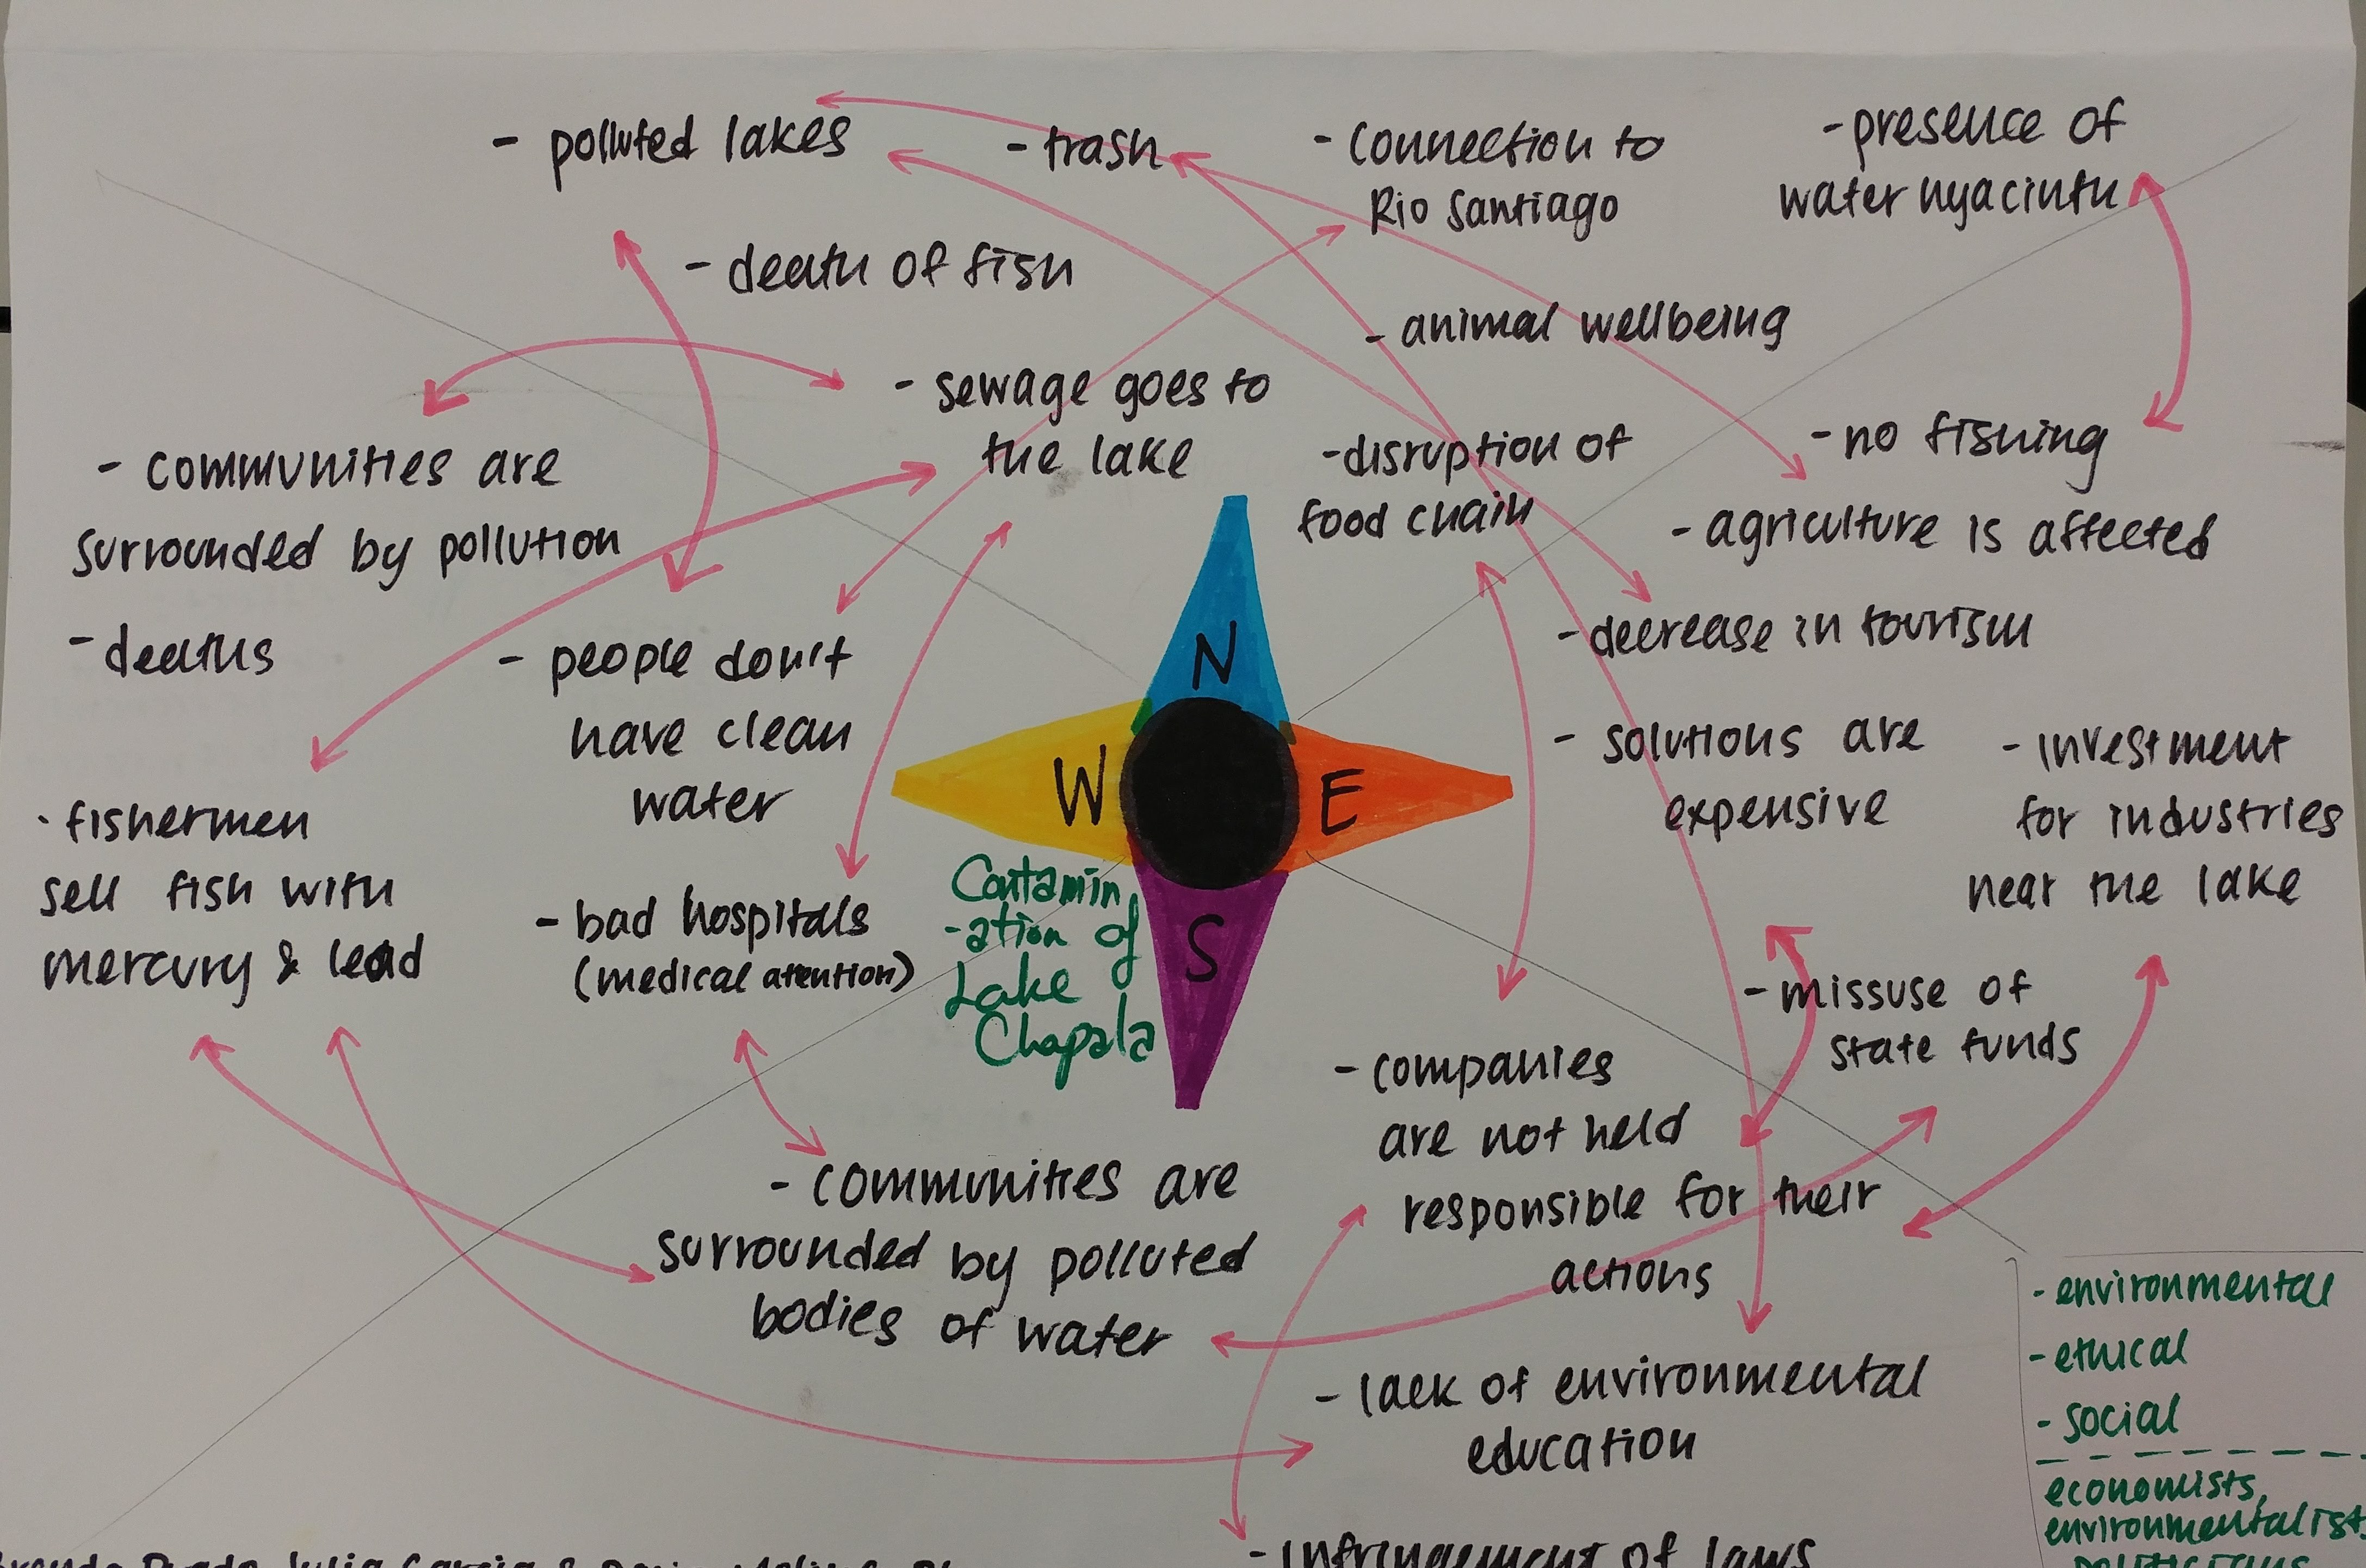 - polluted lakes
- trash
- connection to
Rio Santiago
- presence of
water hyacinth
- death of fish
- animal wellbeing
- sewage goes to
the lake
- disruption of
food chain
- communities are
surrounded by pollution
- deaths
- people don't
have clean
water
- fishermen
sell fish with
mercury & lead
- bad hospitals
(medical atention)
N
W
E
S
Contamin
-ation of
Lake
Chapala
- no fishing
- agriculture is affected
- decrease in tourism
- solutions are
expensive
- investment
for industries
near the lake
- missuse of
state funds
- communities are
surrounded by polluted
bodies of water
- companies
are not held
responsible for their
actions
- lack of environmental
education
- infringement of laws
- environmental
- ethical
- social
economists,
environmentalists,
Julia Garcia &